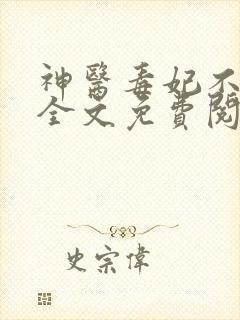 神醫毒妃不
全文免費閱
史宗偉